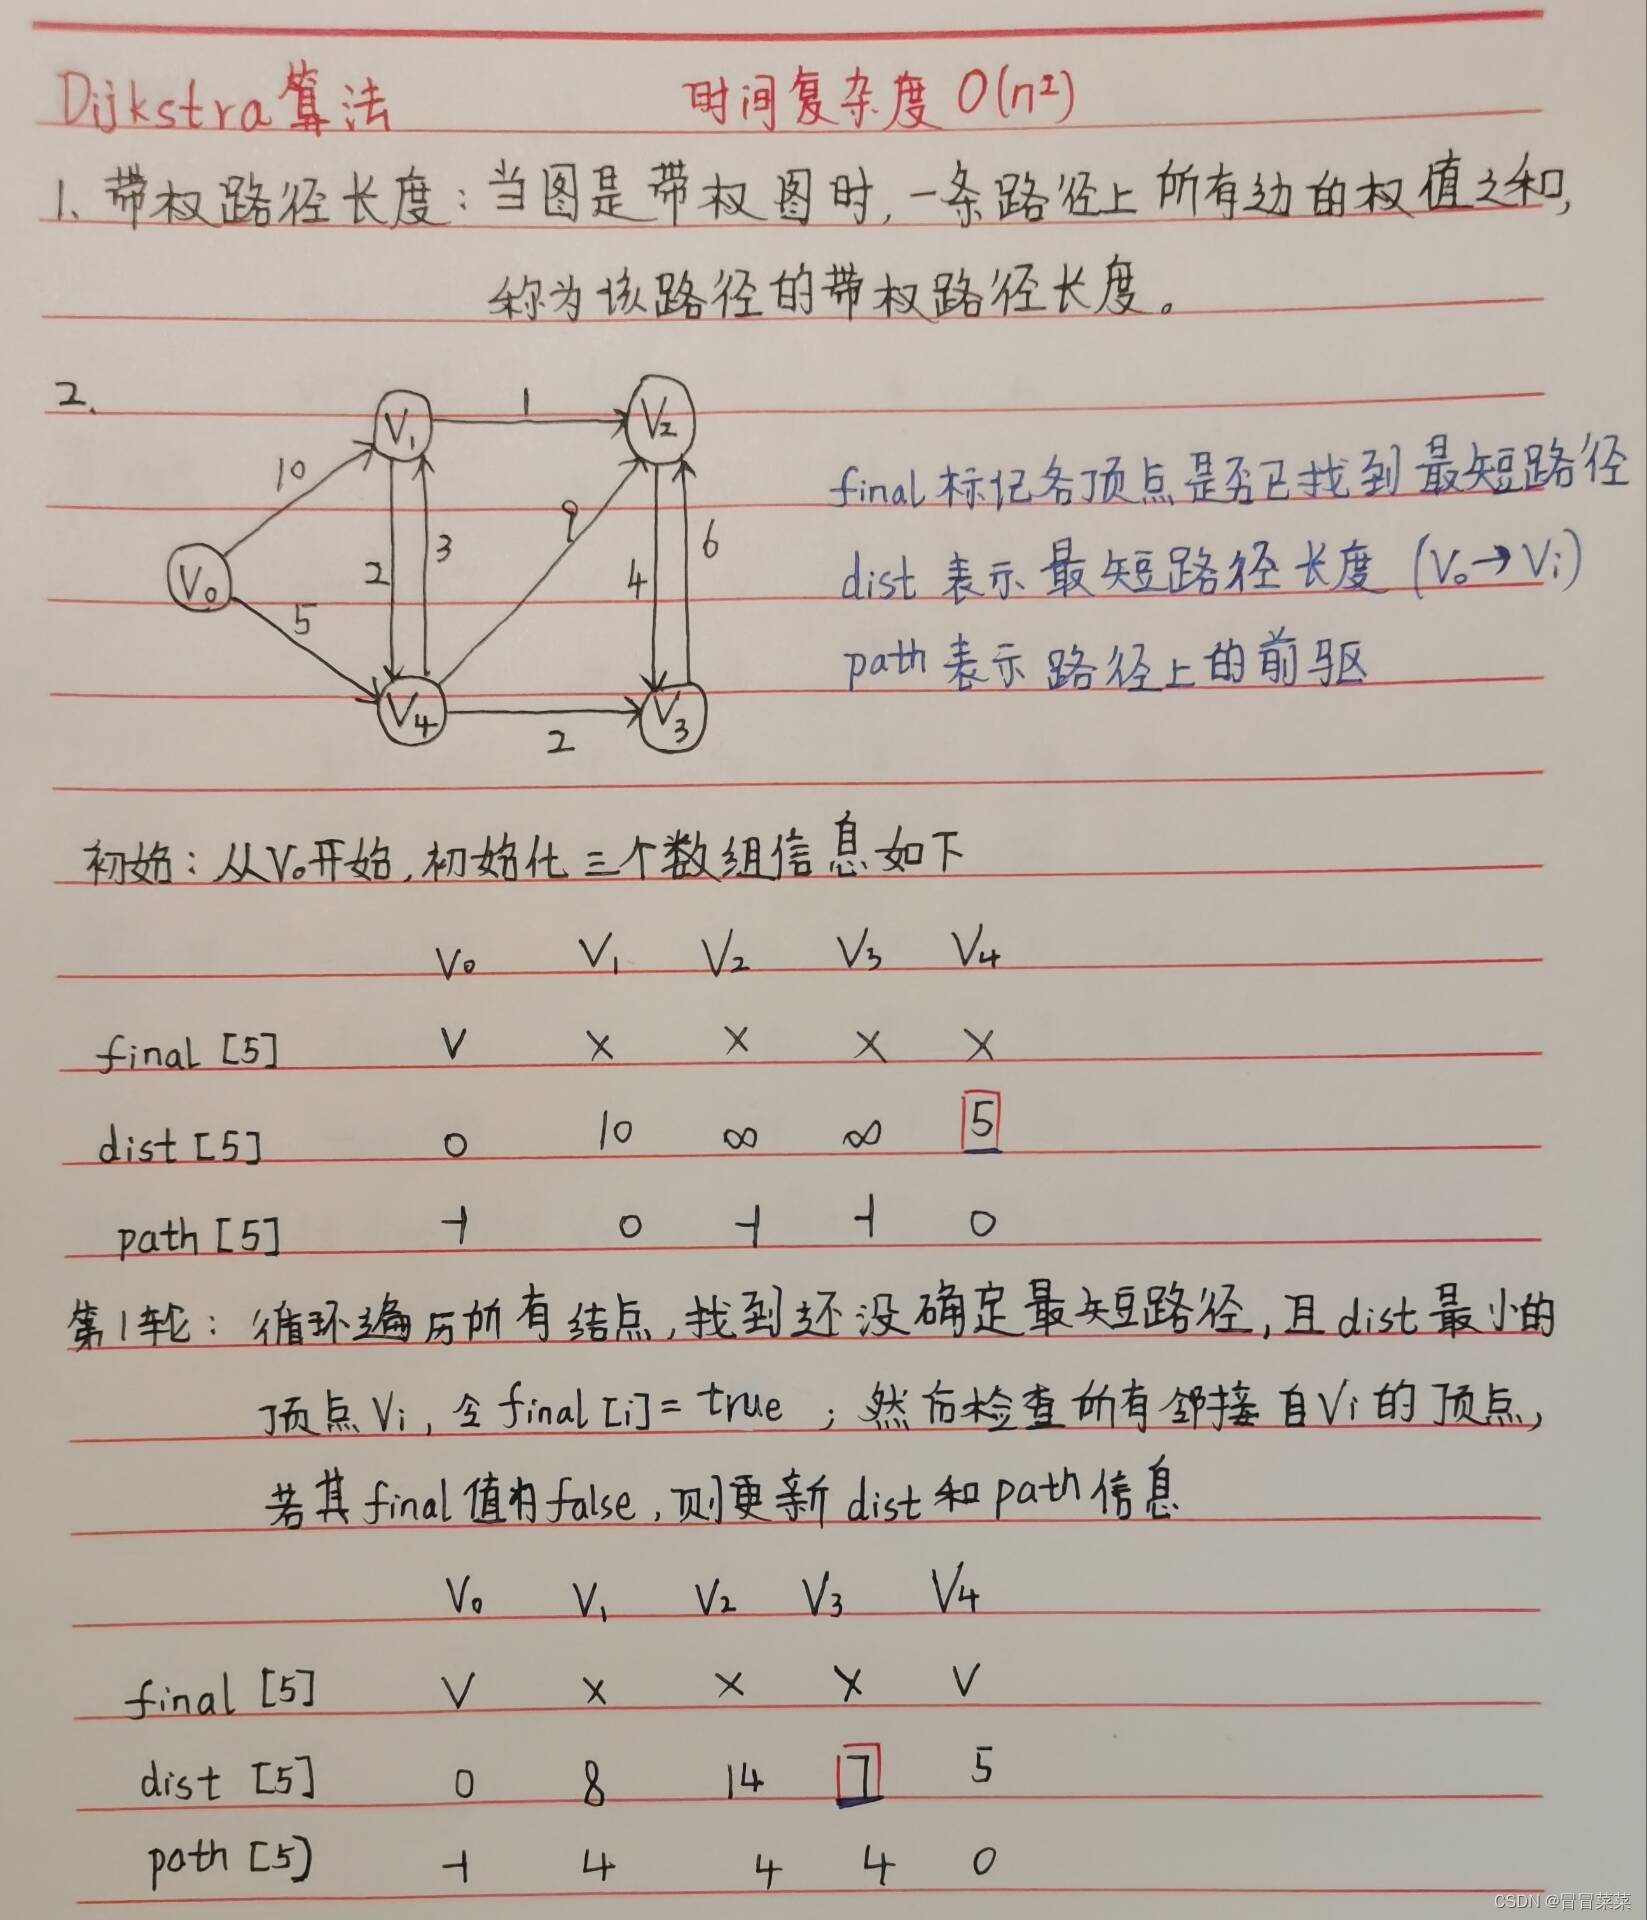 Dijkstra算法 时间复杂度 O(n²)
1、带权路径长度：当图是带权图时，一条路径上所有边的权值之和，
称为该路径的带权路径长度。
2、
V₁ 1 V₂
10
9
V₀ 2 3 4 6
5
V₄ 2 V₃
final 标记各顶点是否已找到最短路径
dist 表示最短路径长度（V₀→Vi）
path 表示路径上的前驱
初始：从V₀开始，初始化三个数组信息如下
V₀ V₁ V₂ V₃ V₄
final [5] √ × × × ×
dist [5] 0 10 ∞ ∞ 5
path [5] -1 0 -1 -1 0
第1轮：循环遍历所有结点，找到还没确定最短路径，且dist最小的
顶点Vi，令final[i]=true；然后检查所有邻接自Vi的顶点，
若其final值为false，则更新dist和path信息
V₀ V₁ V₂ V₃ V₄
final [5] √ × × × √
dist [5] 0 8 14 7 5
path [5] -1 4 4 4 0
CSDN @冒冒菜菜